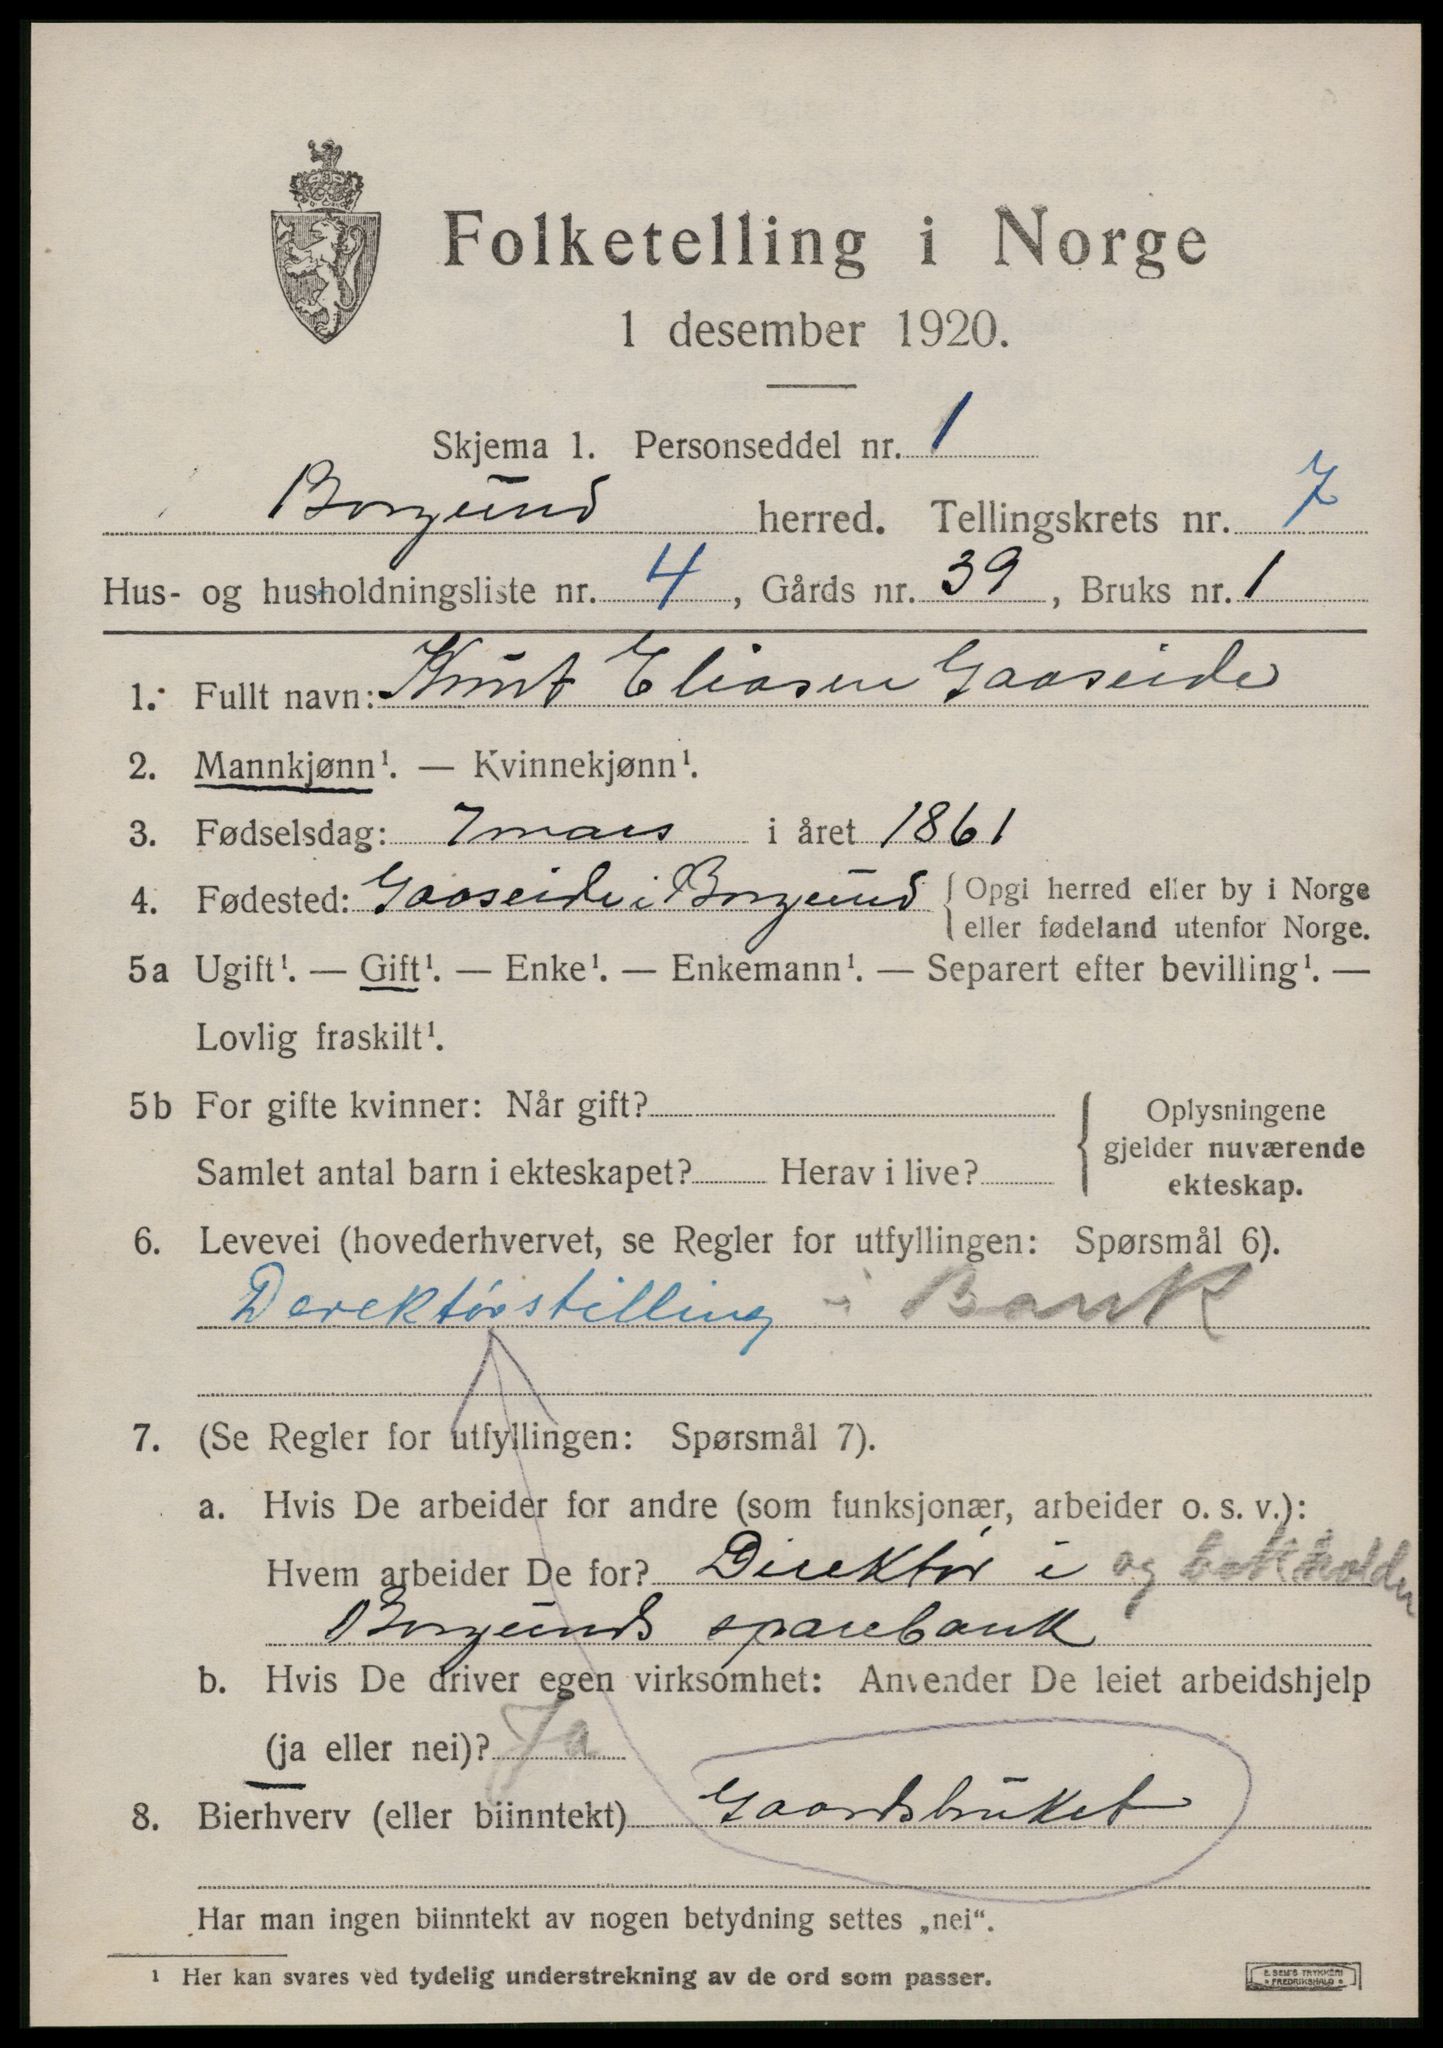 Folketelling i Norge
1 desember 1920.
Skjema 1. Personseddel nr. 1
Borgund herred. Tellingskrets nr. 7
Hus- og husholdningsliste nr. 4, Gårds nr. 39, Bruks nr. 1
1. Fullt navn: Knut Eliasen Gaaseide
2. Mannkjønn¹. — Kvinnekjønn¹.
3. Fødselsdag: 7 mars i året 1861
4. Fødested: Gaaseide i Borgund { Opgi herred eller by i Norge
eller fødeland utenfor Norge.
5a Ugift¹. — Gift¹. — Enke¹. — Enkemann¹. — Separert efter bevilling¹. —
Lovlig fraskilt¹.
5b For gifte kvinner: Når gift?
Samlet antal barn i ekteskapet? Herav i live?
Oplysningene
gjelder nuværende
ekteskap.
6. Levevei (hovederhvervet, se Regler for utfyllingen: Spørsmål 6).
Derektørstilling i Bank
7. (Se Regler for utfyllingen: Spørsmål 7).
a. Hvis De arbeider for andre (som funksjonær, arbeider o. s. v.):
Hvem arbeider De for? Direktør i og bokholder
Borgunds sparebank
b. Hvis De driver egen virksomhet: Anvender De leiet arbeidshjelp
(ja eller nei)? Ja
8. Bierhverv (eller biinntekt) Gaardsbruket
Har man ingen biinntekt av nogen betydning settes „nei“.
¹ Her kan svares ved tydelig understrekning av de ord som passer.
E. SEM'S TRYKKERI
FREDRIKSHALD